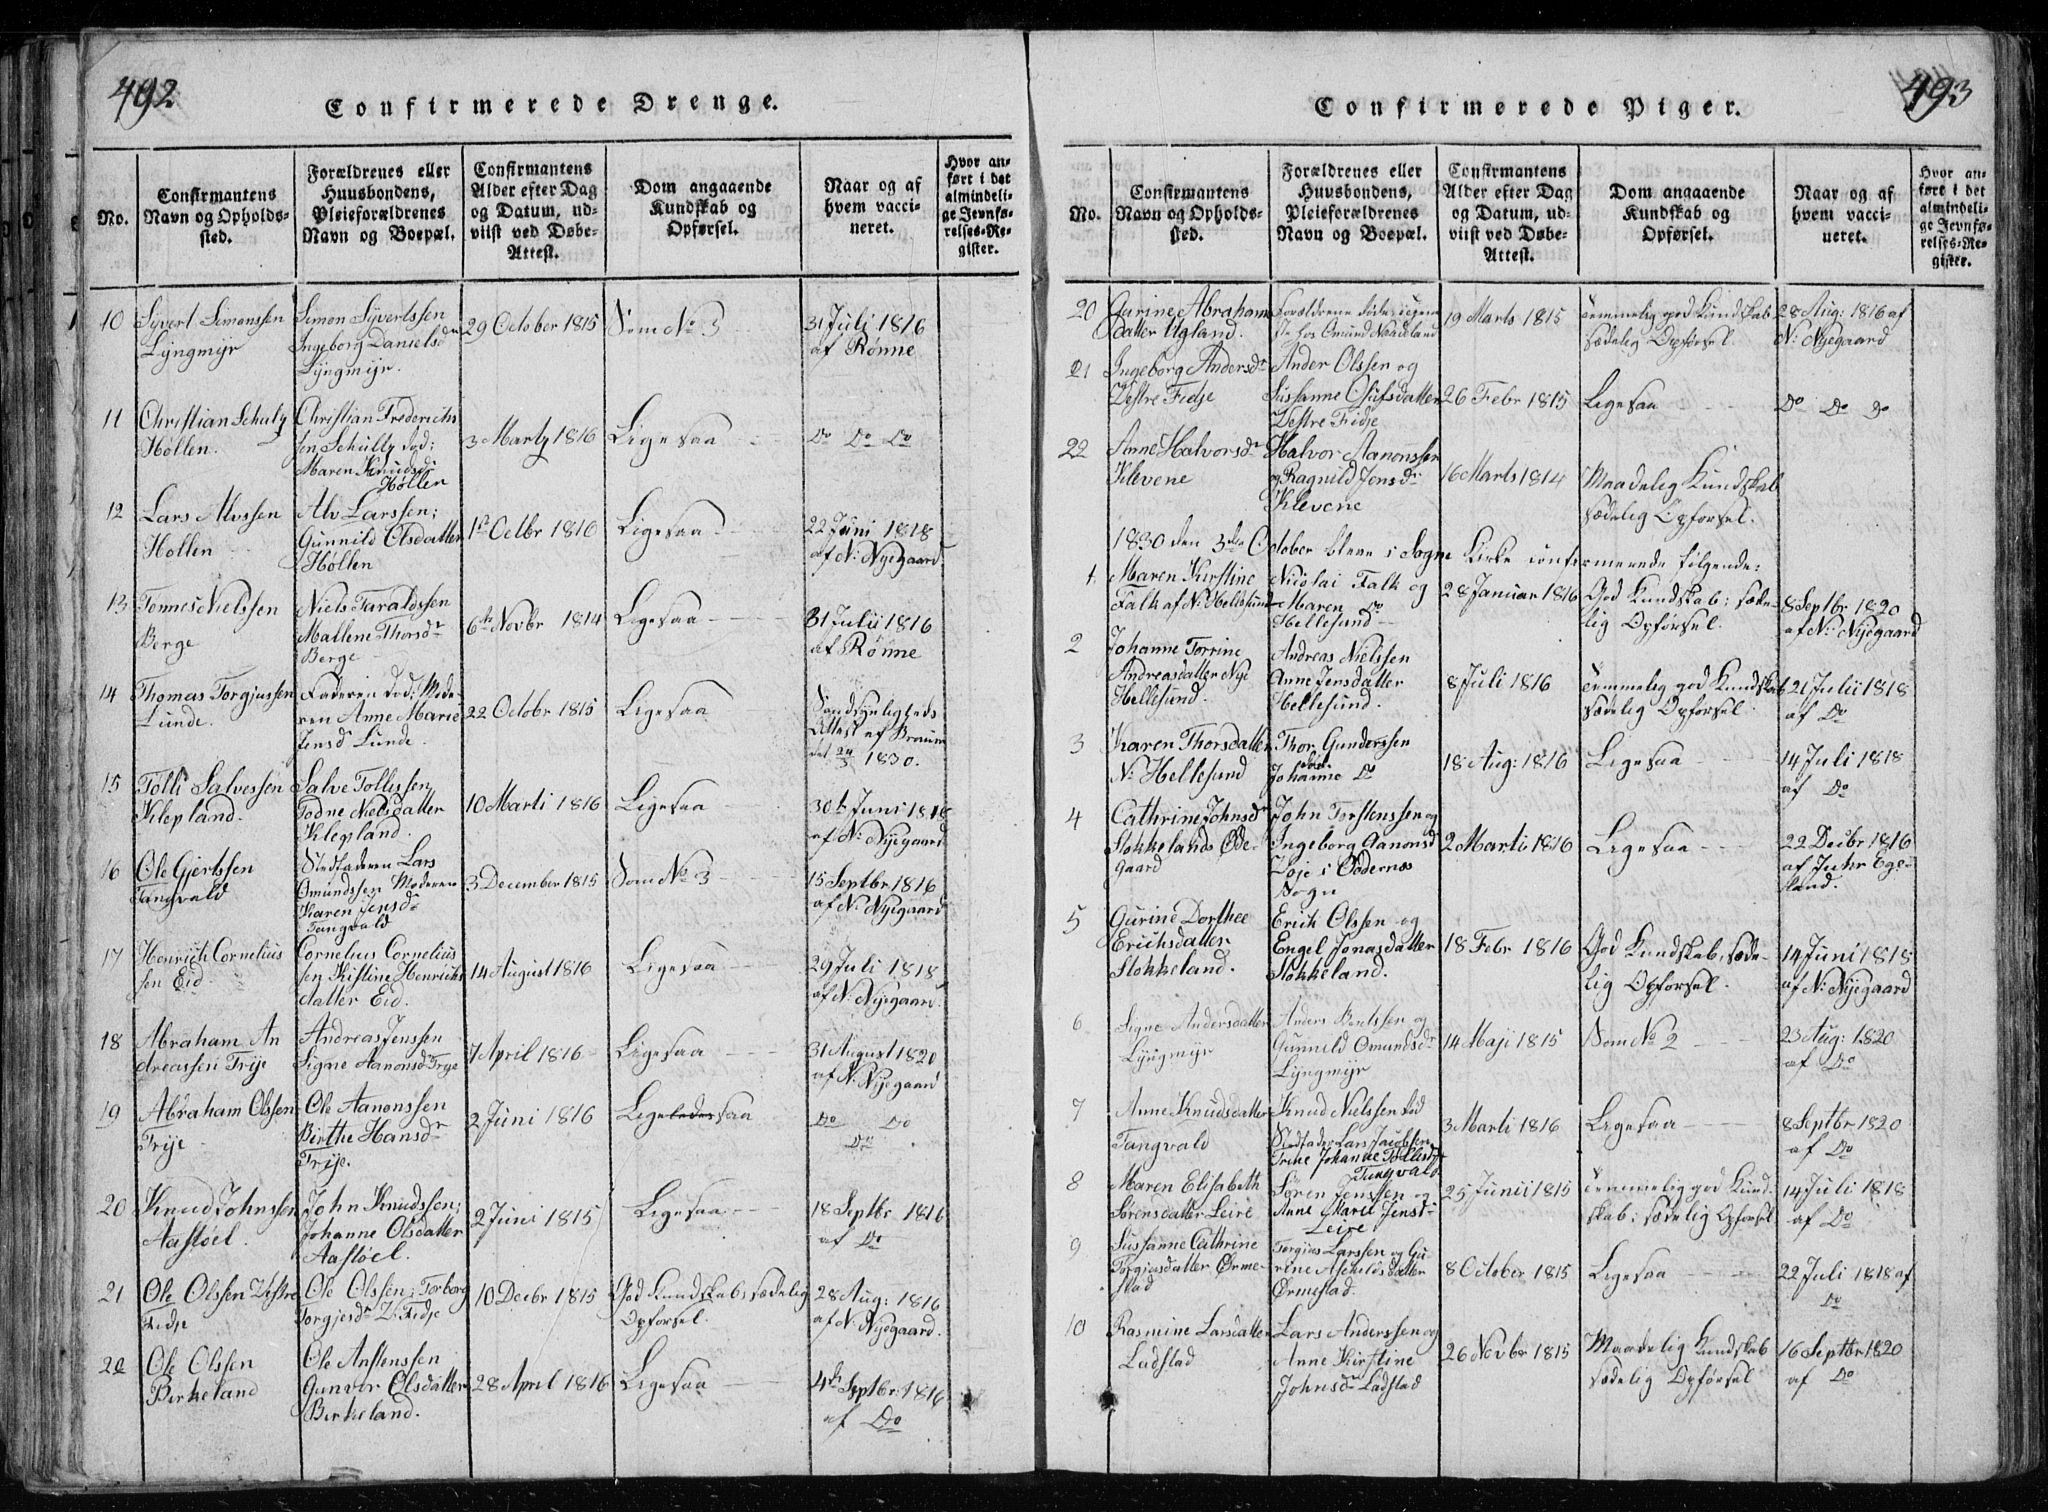 492
Confirmerede Drenge.
No.
Confirmantens
Navn og Opholds-
sted.
Forældrenes eller
Huusbondens,
Pleieforældrenes
Navn og Boepæl.
Confirmantens
Alder efter Dag
og Datum, ud-
viist ved Døbe-
Attest.
Dom angaaende
Kundskab og
Opførsel.
Naar og af
hvem vacci-
neret.
Hvor an-
ført i det
almindeli-
ge Jevnfø-
relses-Re-
gister.
10
Syvert Simonssen
Lyngmyr
Simon Syvertssen
Ingeborg Danielsdr
Lyngmyr.
29 October 1815
Som No 3
31 Juli 1816
af Rønne
11
Christian Schultz
Høllen.
Christian Frederichs
sen Schultz død;
Maren Knudsd
Høllen
3 Martz 1816
Ligesaa
Do Do Do
12
Lars Alvssen
Hollen
Alv Larssen;
Gunnild Olsdatter
Høllen
1st Octbr 1816
Ligesaa
22 Juni 1818
af N: Nyegaard
13
Tønnes Nielssen
Berge
Niels Taraldssen
Mallene Thorsdr
Berge
6th Novbr 1814
Ligesaa
31 Julii 1816
af Rønne
14
Thomas Torgiussen
Lunde.
Faderen død; Mode-
ren Anne Marie
Jensd Lunde.
22 Octobr 1815
Ligesaa
Sandsynligheds
Attest af Bruun
1830.
15
Tolli Salvessen
Klepland.
Salve Tollissen
Todne Nielsdatter
Klepland.
10 Marti 1816
Ligesaa
30th Juni 1818
af N: Nyegaard
16
Ole Gjertssen
Tangvald
Stedfaderen Lars
Omundssen Moderen
Karen Jensd
Tangvald
3 December 1815
Som No 3
15 Septbr 1816
af N: Nyegaard
17
Henrich Cornelius
sen Eid
Cornelius Cornelius
sen Kistine Henrichs
datter Eid.
14 August 1816
Ligesaa
29 Juli 1818
af N: Nyegaard
18
Abraham An
dreassen Trÿe
Andreas Jenssen
Signe Aanonsdr Trye
7 April 1816
Ligesaa
31 August 1820
af N: Nyegaard
19
Abraham Olssen
Trye
Ole Aanonssen
Birthe Hansdr
Trÿe.
2 Juni 1816
Ligeledessaa
Do Do
Do
20
Knud Johnssen
Aastøel.
John Knudssen;
Johanne Olsdatter
Aastøel.
2 Juni 1815
Ligesaa
18 Septbr 1816
af Do
21
Ole Olssen Vestre
Fidje
Ole Olssen; Torborg
Torgjesdr V: Fidje
10 Decbr 1815
God Kundskab, sædelig
Opførsel.
28 Aug: 1816
af N: Nyegaard.
22
Ole Olssen
Birkeland
Ole Anstenssen
Gunvor Olsdatter
Birkeland.
28 April 1816
Ligesaa
4th Septbr 1816
af Do
493
Confirmerede Piger.
No.
Confirmantens
Navn og Opholds-
sted.
Forældrenes eller
Huusbondens,
Pleieforældrenes
Navn og Boepæl.
Confirmantens
Alder efter Dag
og Datum, ud-
viist ved Døbe-
Attest.
Dom angaaende
Kundskab og
Opførsel.
Naar og af
hvem vacci-
neret.
Hvor an-
ført i det
almindeli-
ge Jevnfø-
relses-Re-
gister.
20
Gurine Abraham
datter Ugland.
Forældrene døde;
hos Omund Naadeland
19 Marts 1815
Temmelig god Kundskab
sædelig Opførsel.
28 Aug: 1816 af
N: Nyegaard
21
Ingeborg Andersdr
Vestre Fidje
Ander Olssen og
Sussanne Olufsdatter
Vestre Fidje
26 Febr 1815
Ligesaa
Do Do Do
22
Anne Halvorsdr
Klevene
Halvor Aanonssen
og Ragnild Jensdr
Klevene
16 Marts 1814
Maadelig Kundskab
sædelig Opførsel.
1830 den 3die October bleve i Sogne Kirke confirmerede følgende:
1
Maren Kirstine
Falk af N: Hellesund
Nicolai Falk og
Maren Do
Hellesund
28 Januar 1816
God Kundskab; sæde-
lig Opførsel.
8 Septbr 1820
af N: Nyegaard
2
Johanne Torrine
Andreasdatter Nye
Hellesund.
Andreas Nielssen
Anne Jensdatter
Hellesund.
8 Juli 1816
Temmelig god Kundskab
sædelig Opførsel.
21 Julii 1818
af Do
3
Karen Thorsdatter
N: Hellesund
Thor Gunderssen
Johanne Do
18 Aug: 1816
Ligesaa
14 Juli 1818
af Do
4
Cathrine Johnsdr
Stokkelands Øde-
gaard
John Torstenssen og
Ingeborg Aanonsd
Voje i Oddernæs
Sogn
2 Marti 1816
Ligesaa
22 Decbr 1816
af Juhr Ege-
land.
5
Gurine Dorthee
Erichsdatter
Stokkeland.
Erick Olssen og
Engel Jonasdatter
Stokkeland.
18 Febr 1816
God Kundskab, sæde-
lig Opførsel.
14 Juni 1818
af N: Nyegaard
6
Signe Andersdatter
Lyngmyr
Anders Bentssen og
Gunnild Omundsdr
Lyngmyr
14 Maji 1815
Som No 2
23 Aug: 1820
af Do
7
Anne Knudsdatter
Tangvald
Knud Nielssen død
Stedfader Lars Jacobsen
Trine Johanne Tollisdr
Tangvald
3 Marti 1816
Ligesaa
8 Septbr 1820
af Do
8
Maren Elisabeth
Sørensdatter Leire
Søren Jenssen og
Anne Marie Jensdr
Leire
25 Junii 1815
Temmelig god Kund-
skab; sædelig Opførsel
14 Juli 1818
af Do
9
Sussanne Cathrine
Torgiusdatter Ørme-
stad
Torgius Larssen og Gu-
rine Askildsdatter
Ørmestad.
8 October 1815
Ligesaa
22 Juli 1818 af
Do
10
Rasmine Larsdatter
Ladstad
Lars Anderssen og
Anne Kirstine
Johnsdr Ladstad
26 Novbr 1815
Maadelig Kundskab
sædelig Opførsel
16 Septbr 1820
af Do